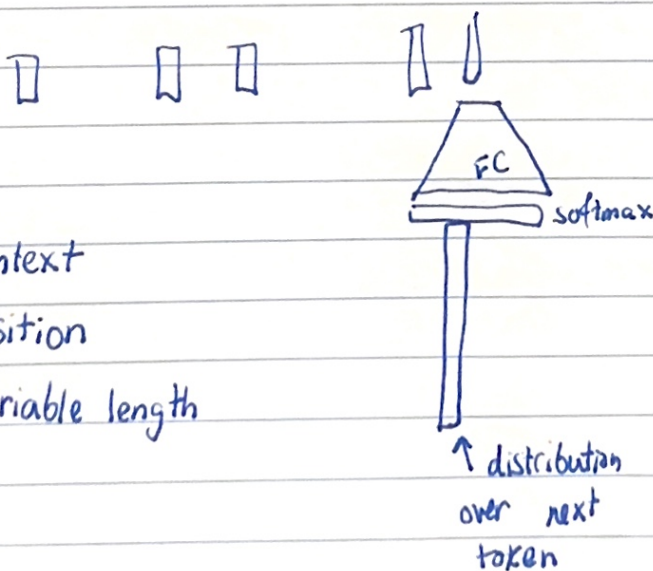 FC
softmax
ntext
sition
riable length
↑ distribution
over next
token